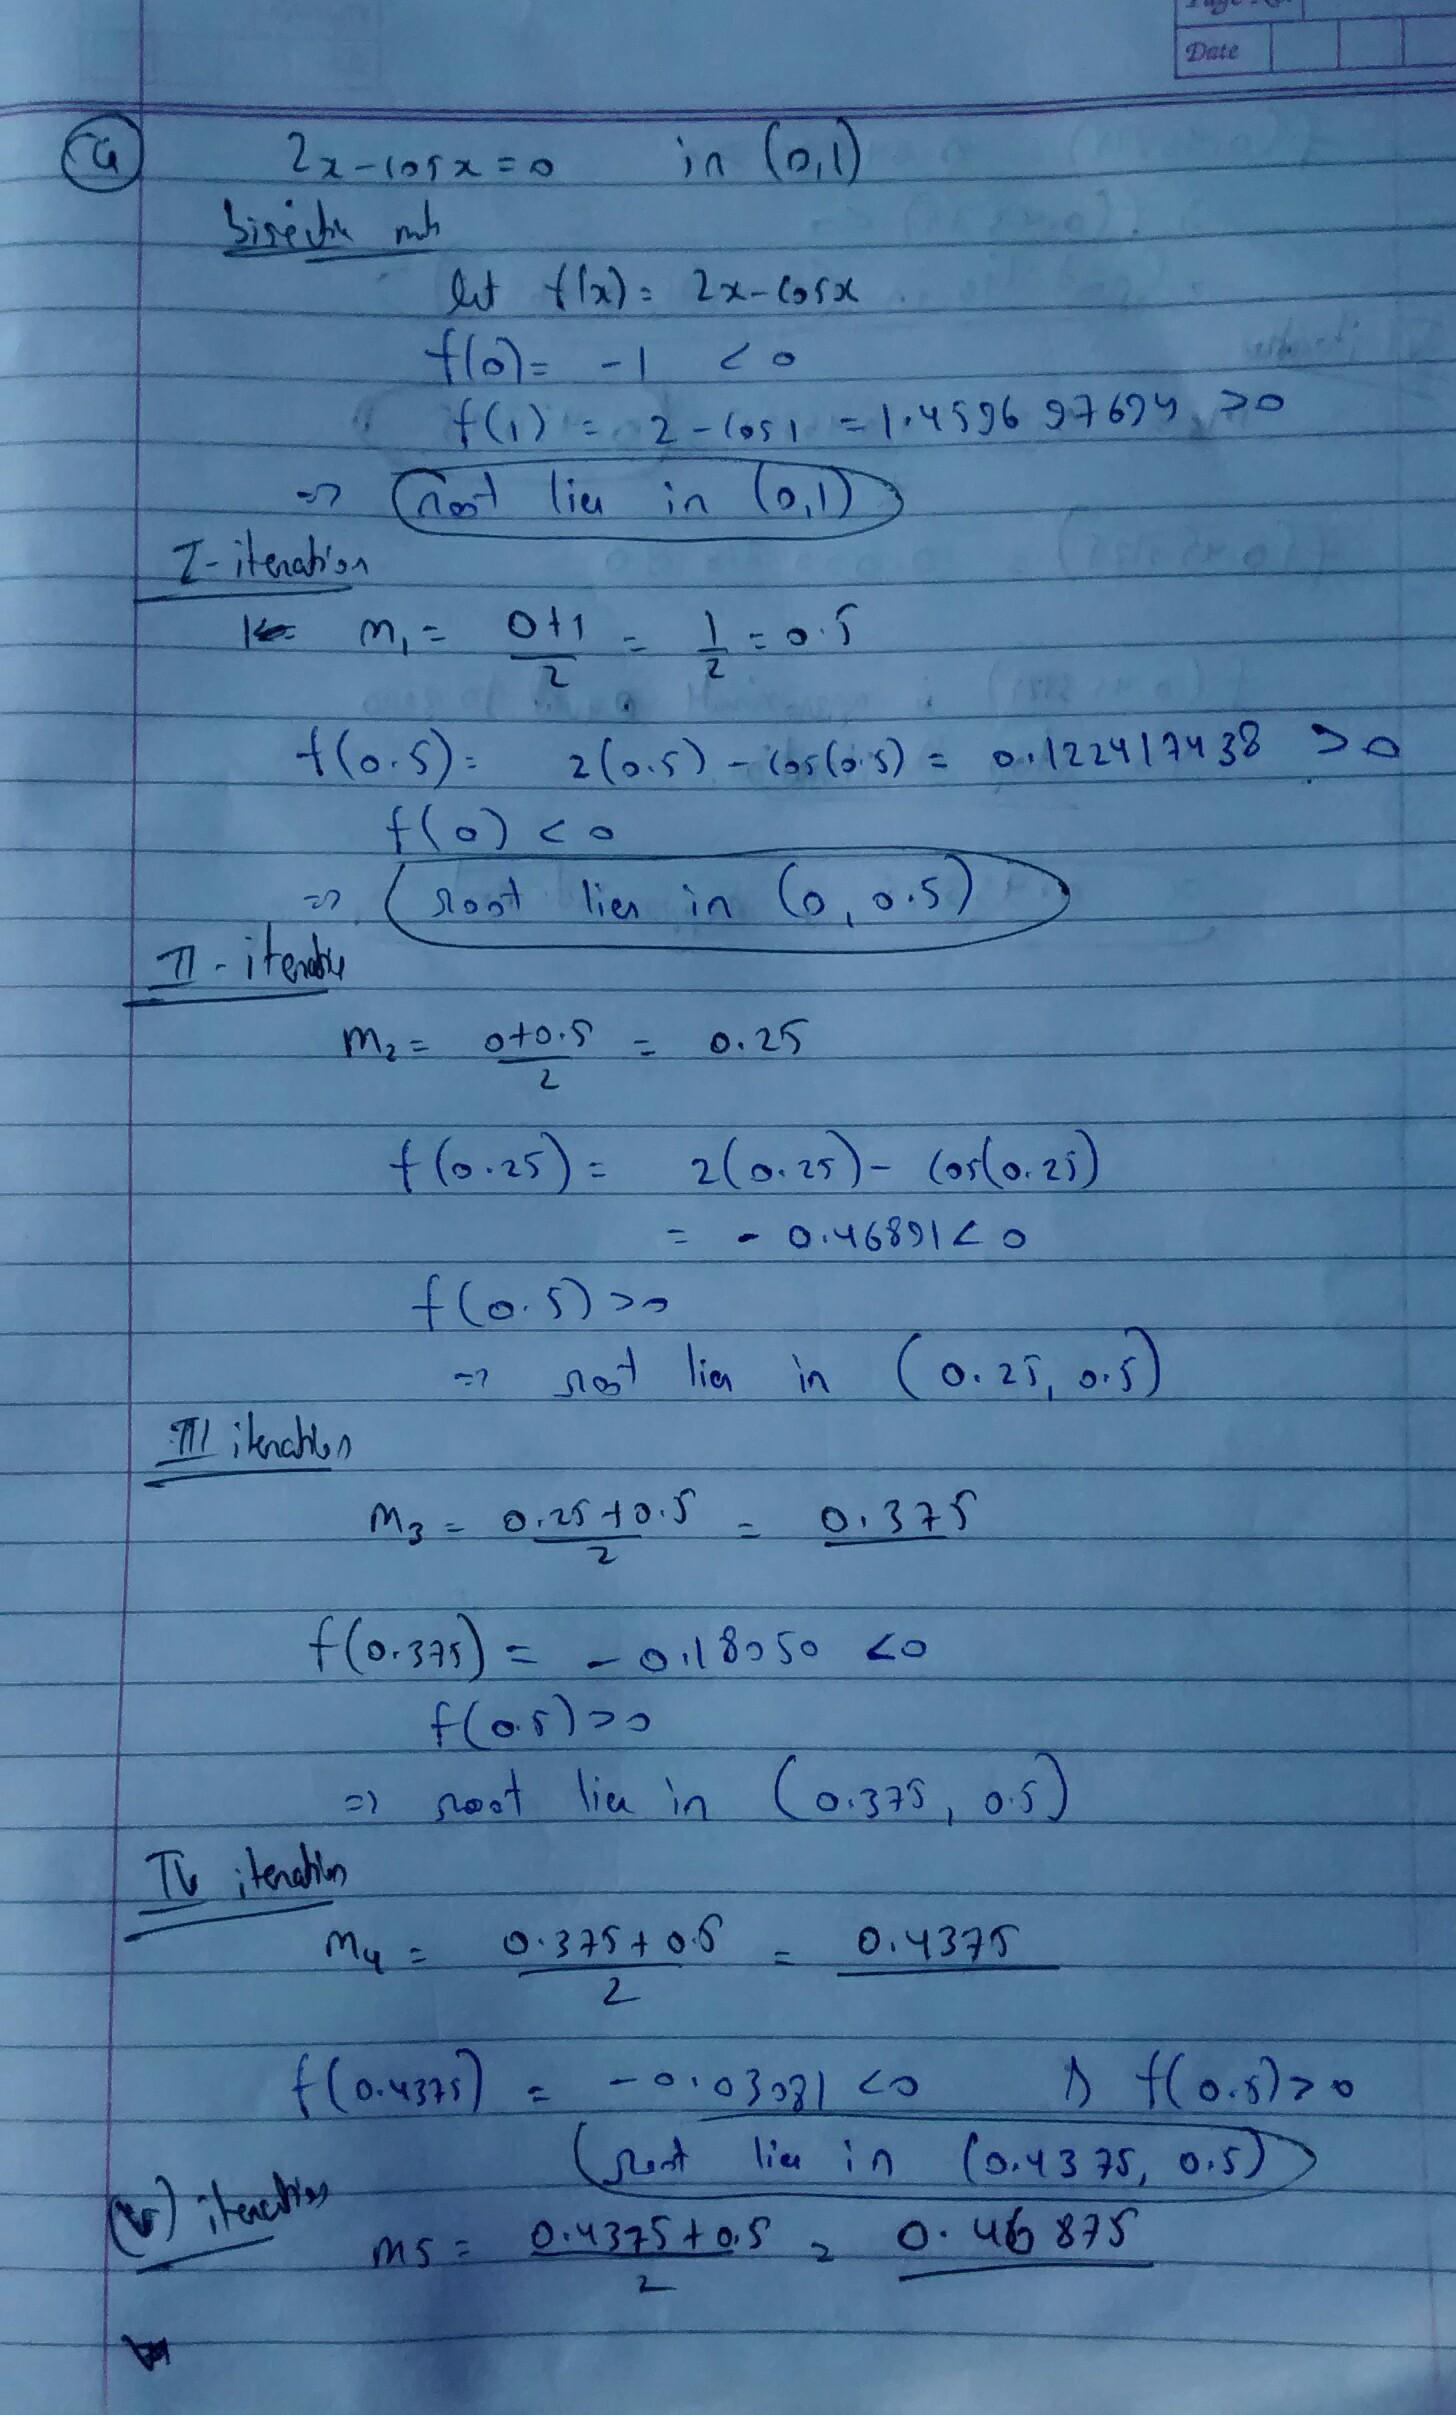 Date
4
2x-cosx=0 in (0,1)
let f(x)= 2x-cosx
f(0)= -1 <0
f(1) = 2-cos1 =1.459697694 >0
=> root lies in (0,1)
I-iteration
m₁= 0+1/2 = 1/2 = 0.5
f(0.5)= 2(0.5)-cos(0.5) = 0.122417438 >0
f(0) <0
=> root lies in (0, 0.5)
II-iteration
m₂= 0+0.5/2 = 0.25
f(0.25)= 2(0.25)- cos(0.25)
= - 0.46891<0
f(0.5)>0
=> root lies in (0.25, 0.5)
III iteration
m₃= 0.25+0.5/2 = 0.375
f(0.375)= -0.18050 <0
f(0.5)>0
=> root lies in (0.375, 0.5)
IV iteration
m₄ = 0.375+0.5/2 = 0.4375
f(0.4375) = -0.03081 <0 & f(0.5)>0
root lies in (0.4375, 0.5)
(v) iteration
m5= 0.4375+0.5/2 = 0.46875